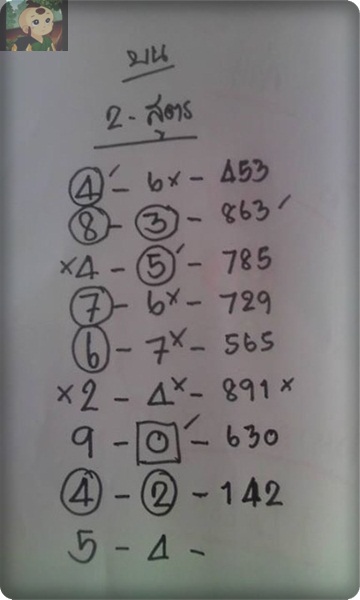 บน
2 - สูตร
4 ✓ - 6x - 453
8 - 3 - 863 ✓
x4 - 5 ✓ - 785
7 - 6x - 729
6 - 7x - 565
x2 - 4x - 891x
9 - 0 ✓ - 630
4 - 2 - 142
5 - 4 -